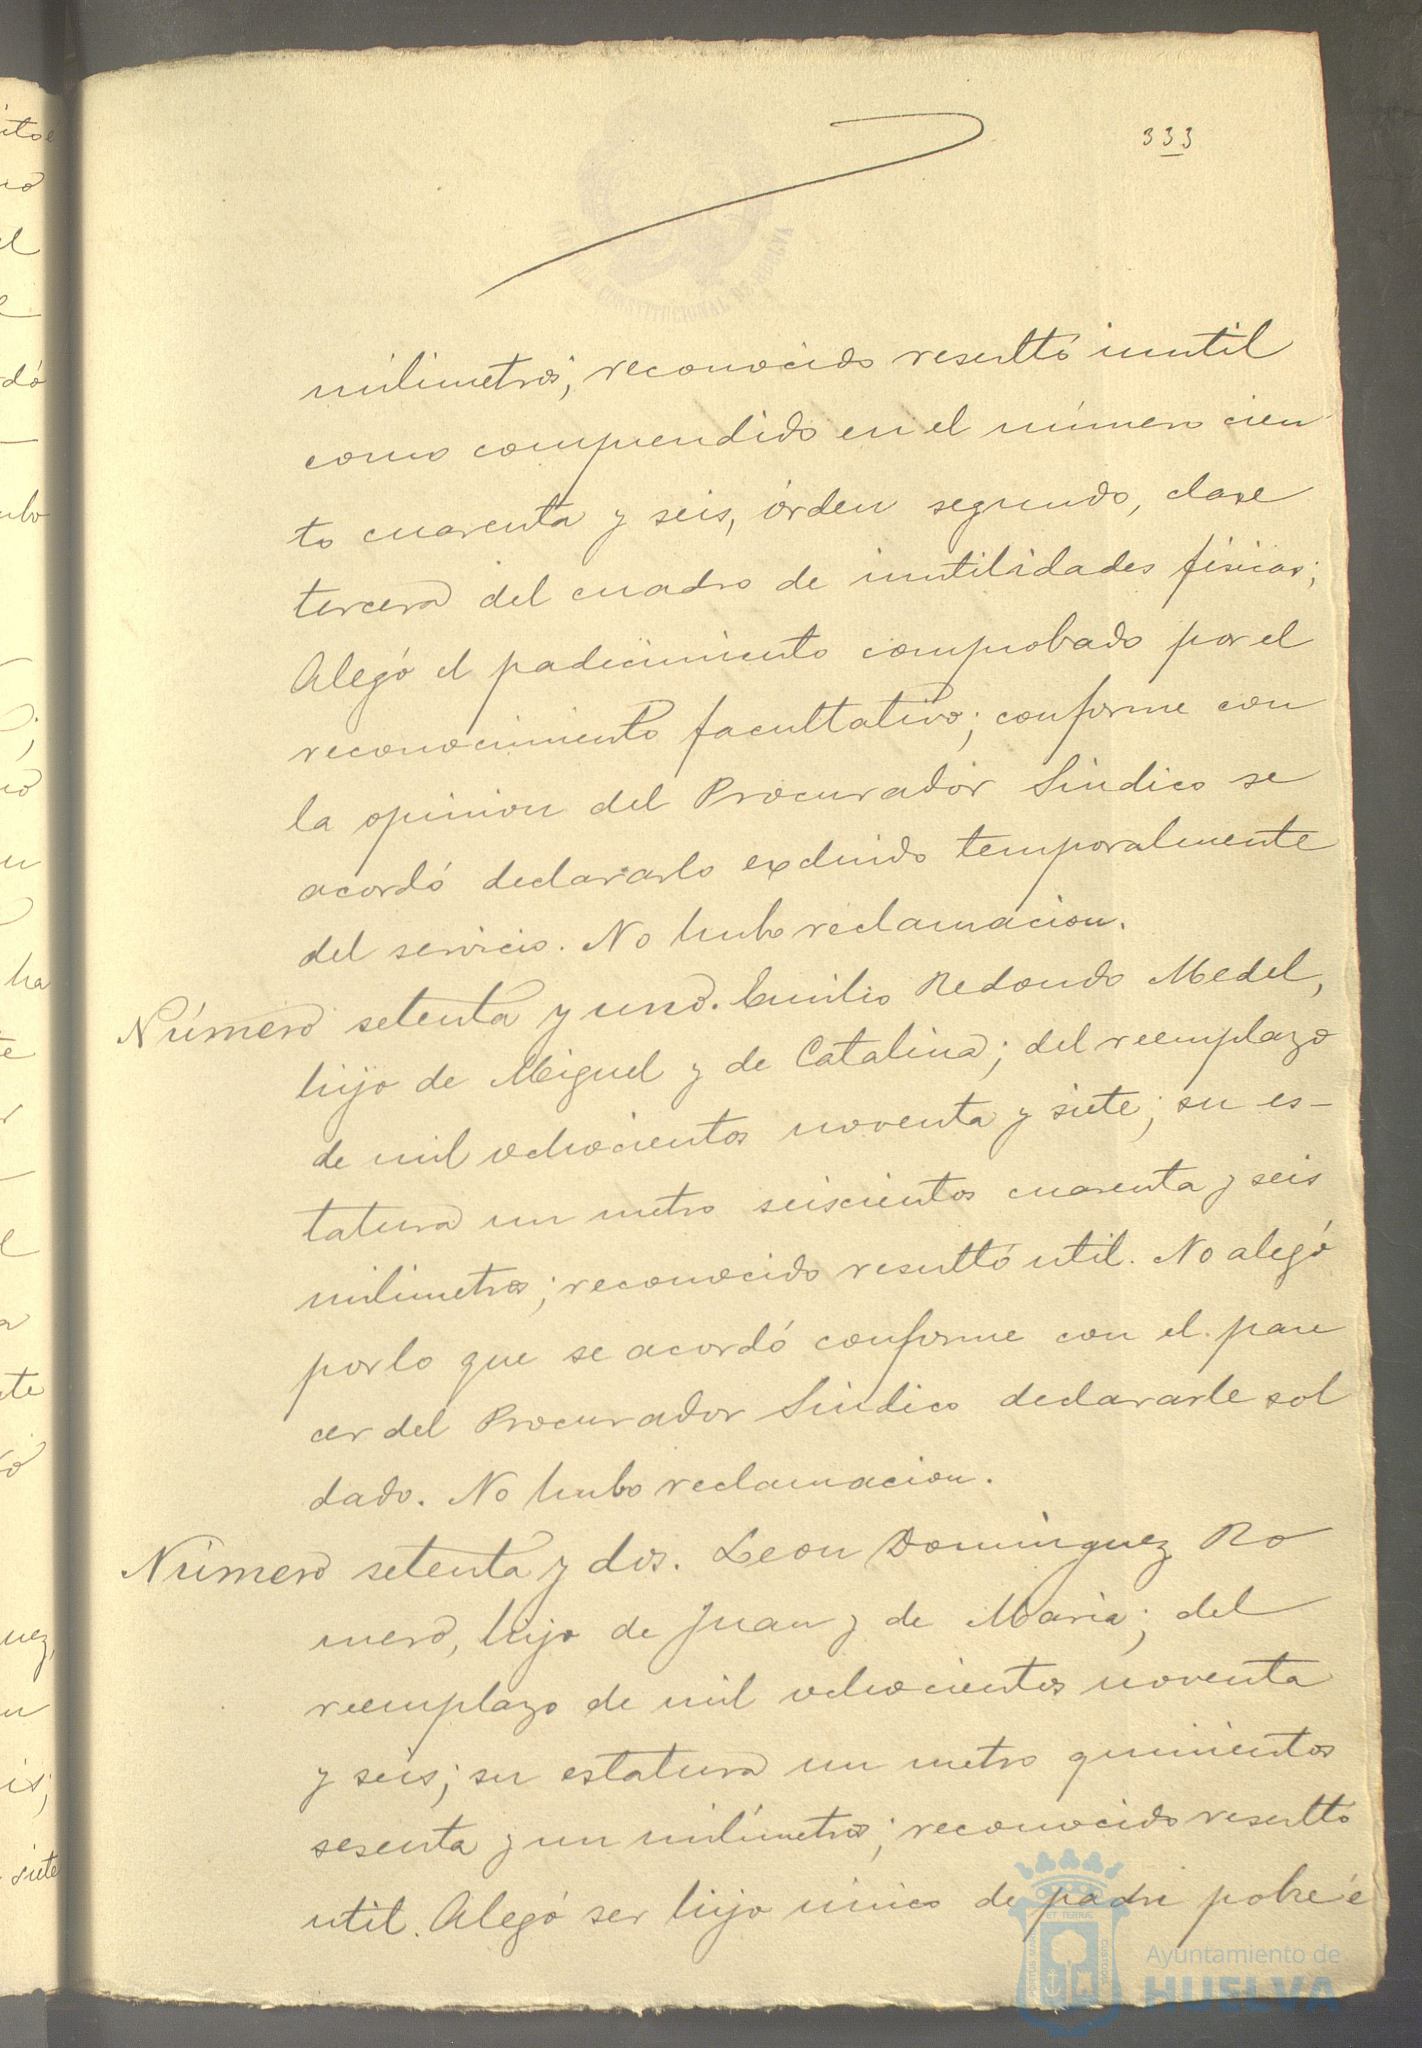 333
milimetros; reconocido resultó inutil
como comprendido en el número cien
to cuarenta y seis, órden segundo, clase
tercera del cuadro de inutilidades físicas;
Alegó el padecimiento comprobado por el
reconocimiento facultativo; conforme con
la opinion del Procurador Sindico se
acordó declararlo excluido temporalmente
del servicio. No hubo reclamacion.
Número setenta y uno. Emilio Redondo Medel,
hijo de Miguel y de Catalina; del reemplazo
de mil ochocientos noventa y siete; su es-
tatura un metro seiscientos cuarenta y seis
milimetros; reconocido resultó util. No alegó
por lo que se acordó conforme con el pare
cer del Procurador Sindico declararle sol
dado. No hubo reclamacion.
Número setenta y dos. Leon Dominguez Ro
mero, hijo de Juan y de Maria; del
reemplazo de mil ochocientos noventa
y seis; su estatura un metro quinientos
sesenta y un milímetros; reconocido resultó
util. Alegó ser hijo único de padre pobre é
Ayuntamiento de
HUELVA